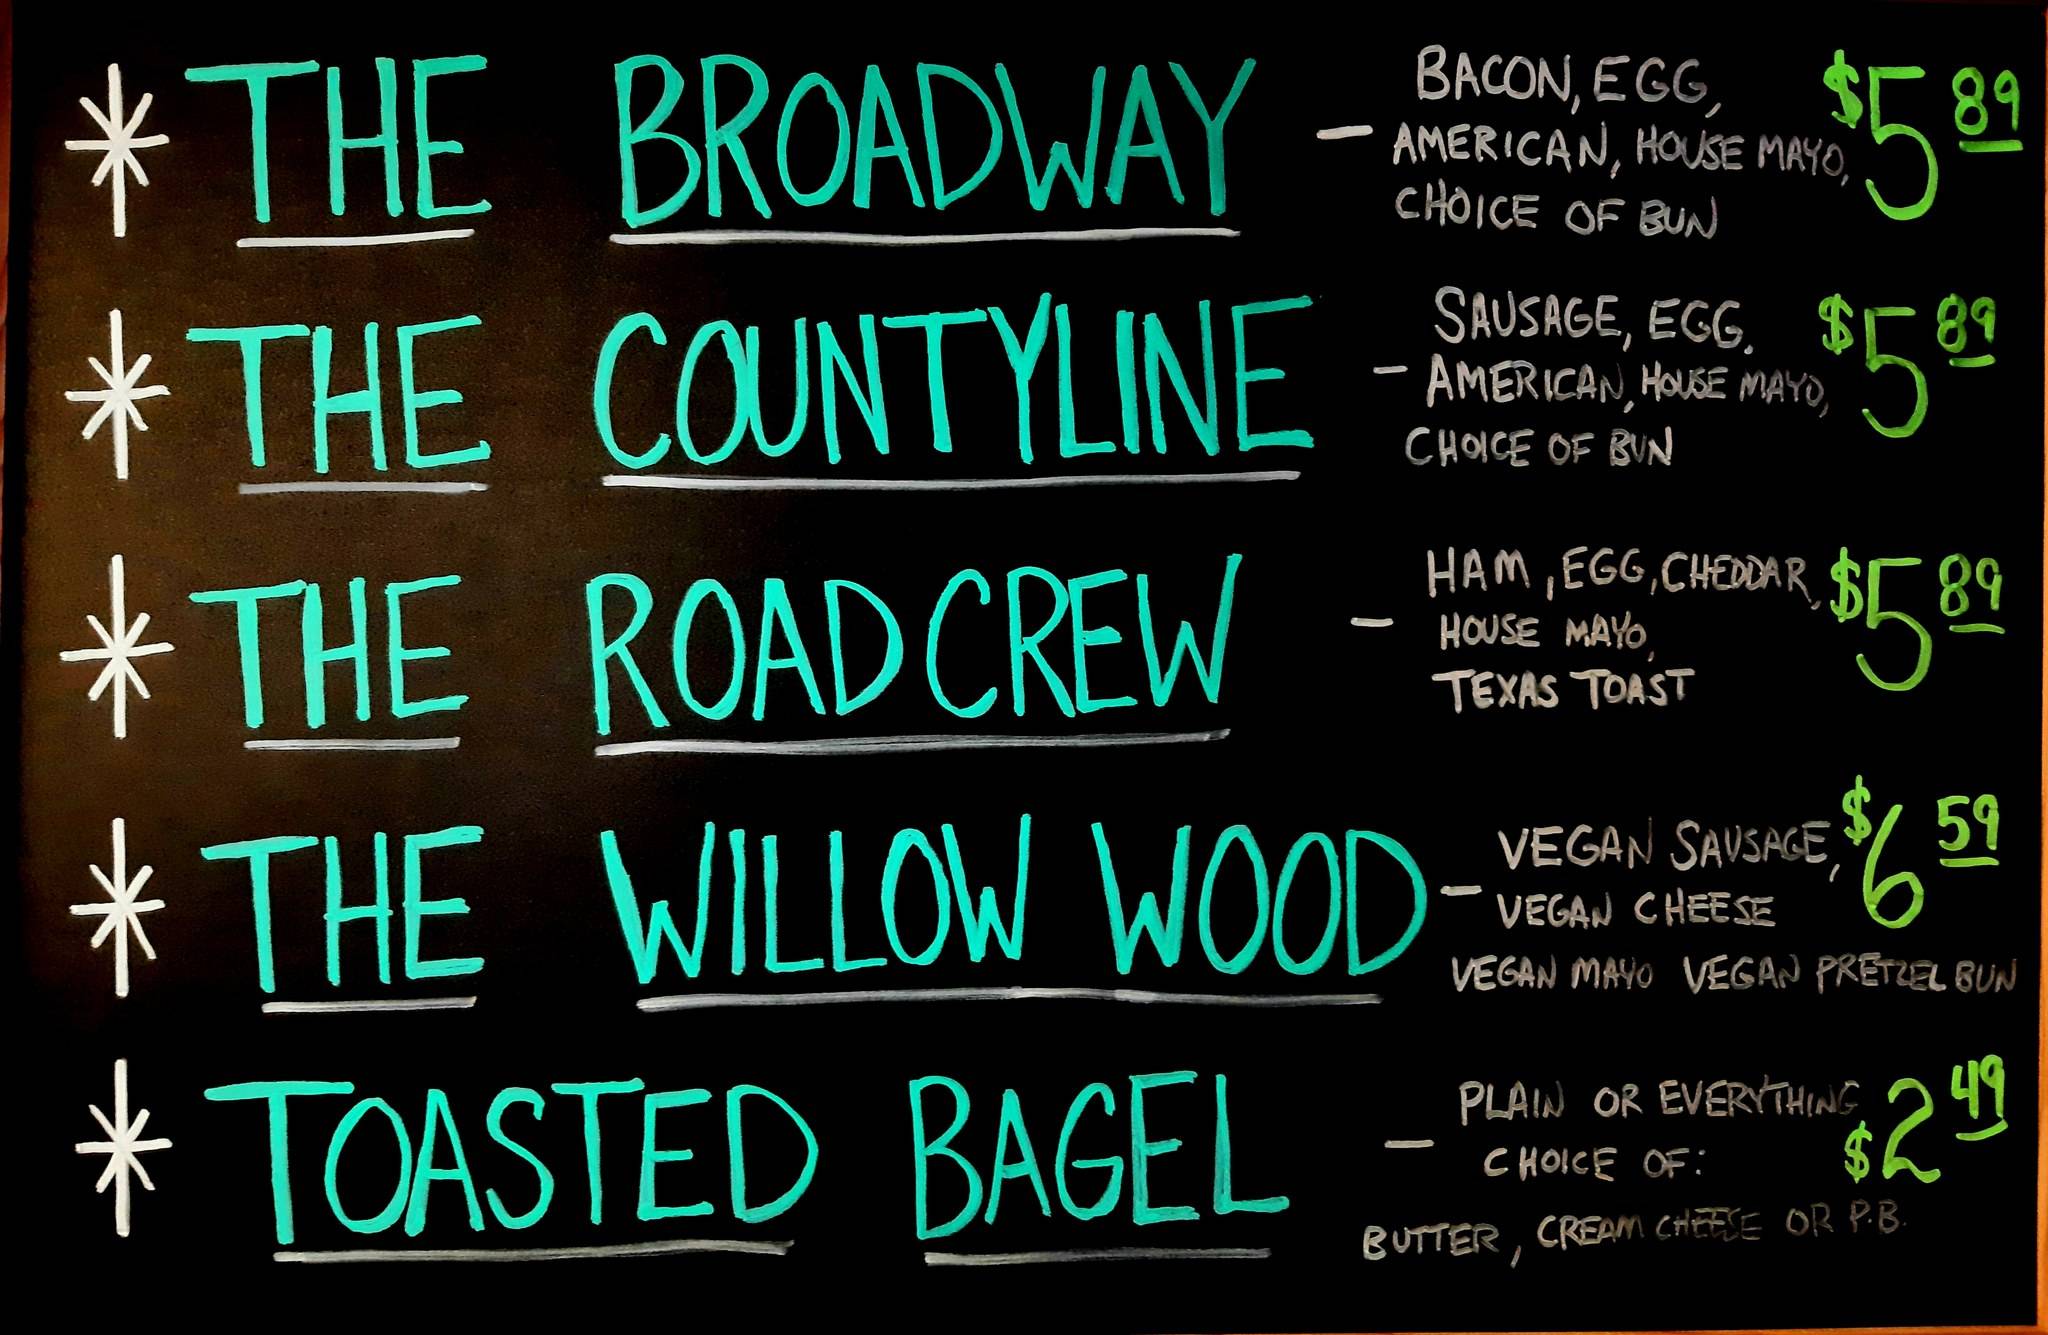 * THE BROADWAY - BACON, EGG, $5 89
AMERICAN, HOUSE MAYO,
CHOICE OF BUN
* THE COUNTYLINE - SAUSAGE, EGG, $5 89
AMERICAN, HOUSE MAYO,
CHOICE OF BUN
* THE ROAD CREW - HAM, EGG, CHEDDAR, $5 89
HOUSE MAYO,
TEXAS TOAST
* THE WILLOW WOOD - VEGAN SAUSAGE, $6 59
VEGAN CHEESE
VEGAN MAYO VEGAN PRETZEL BUN
* TOASTED BAGEL - PLAIN OR EVERYTHING $2 49
CHOICE OF:
BUTTER, CREAM CHEESE OR P.B.